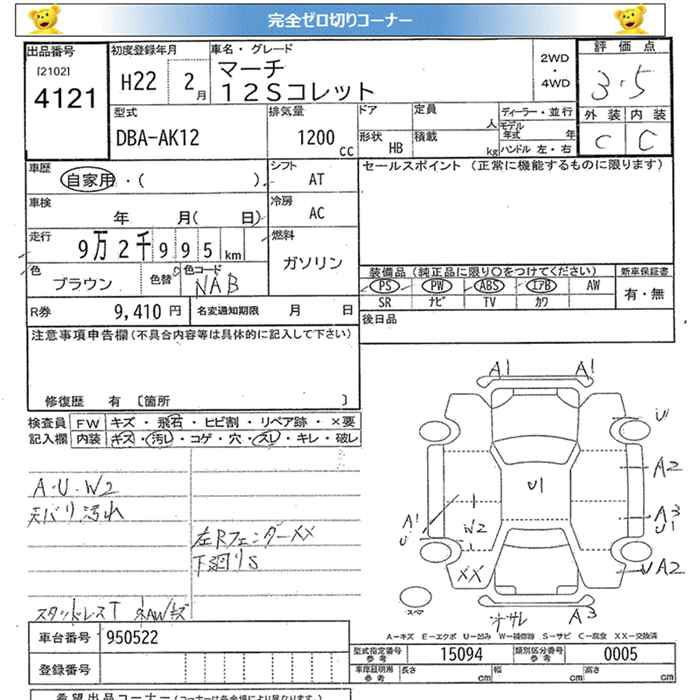 完全ゼロ切りコーナー
出品番号
[2102]
4121
初度登録年月
H22 2月
車名・グレード
マーチ
12Sコレット
2WD
・
4WD
評価点
3.5
外装 内装
C C
型式
DBA-AK12
排気量
1200 cc
ドア
形状 HB
定員 人
積載 kg
ディーラー・並行
モデル年式 年
ハンドル 左・右
車歴
自家用・( )
シフト
AT
車検
年 月( 日)
冷房
AC
走行
9万2千995km
燃料
ガソリン
色
ブラウン
色替
色コード
NAB
R券 9,410円
名変通知期限 月 日
セールスポイント (正常に機能するものに限ります)
装備品 (純正品に限り○をつけてください)
新車保証書
PS PW ABS エアB AW
有・無
SR ナビ TV カワ
後日品
注意事項申告欄 (不具合内容等は具体的に記入して下さい)
修復歴 有 [箇所 ]
検査員 FW キズ・飛石・ヒビ割・リペア跡・×要
記入欄 内装 キズ・汚レ・コゲ・穴・スレ・キレ・破レ
A・U・W2
天バリ汚れ
左Rフェンダー××
下廻りS
スタッドレスT
A1 A1
U
A2
U1
A3
U1
A1
U
W2
XX
U A2
A3
スペア
A-キズ E-エクボ U-凹み W-補修跡 S-サビ C-腐食 XX-交換済
車台番号 950522
登録番号
型式指定番号 参考 15094
類別区分番号 参考 0005
車庫証明用 参考 長さ cm 幅 cm 高さ cm
希望出品コーナー